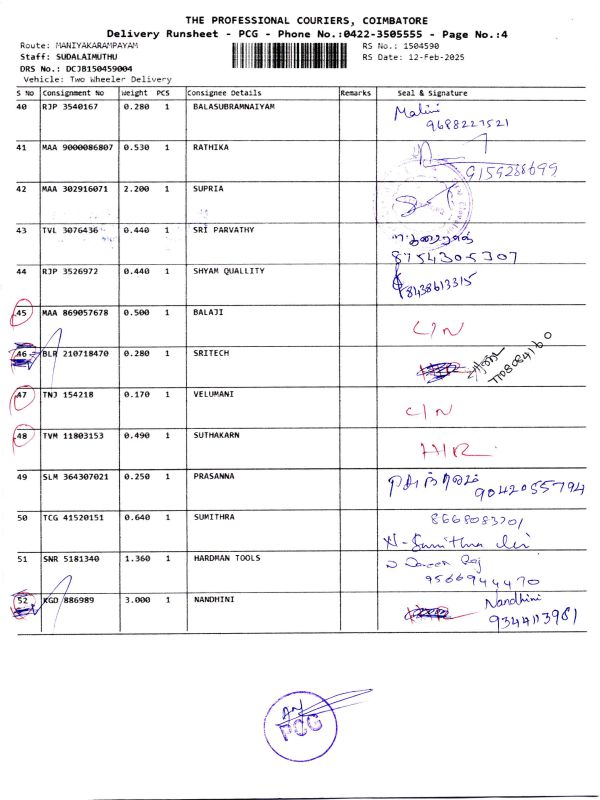 THE PROFESSIONAL COURIERS, COIMBATORE
Delivery Runsheet - PCG - Phone No.:0422-3505555 - Page No.:4
Route: MANIYAKARAMPAYAM RS No.: 1504590
Staff: SUDALAIMUTHU RS Date: 12-Feb-2025
DRS No.: DCJB150459004
Vehicle: Two Wheeler Delivery
S No Consignment No Weight PCS Consignee Details Remarks Seal & Signature
40 RJP 3540167 0.280 1 BALASUBRAMNAIYAM Malini
9688227521
41 MAA 9000086807 0.530 1 RATHIKA
9159288699
42 MAA 302916071 2.200 1 SUPRIA
43 TVL 3076436 0.440 1 SRI PARVATHY
8754305307
44 RJP 3526972 0.440 1 SHYAM QUALLITY
8438613315
45 MAA 869057678 0.500 1 BALAJI C/N
46 BLR 210718470 0.280 1 SRITECH 7708084160
47 TNJ 154218 0.170 1 VELUMANI C/N
48 TVM 11803153 0.490 1 SUTHAKARN H/R
49 SLM 364307021 0.250 1 PRASANNA
9042055794
50 TCG 41520151 0.640 1 SUMITHRA 8668083701
51 SNR 5181340 1.360 1 HARDMAN TOOLS
9566944470
52 KGD 886989 3.000 1 NANDHINI Nandhini
9344113981
PCG